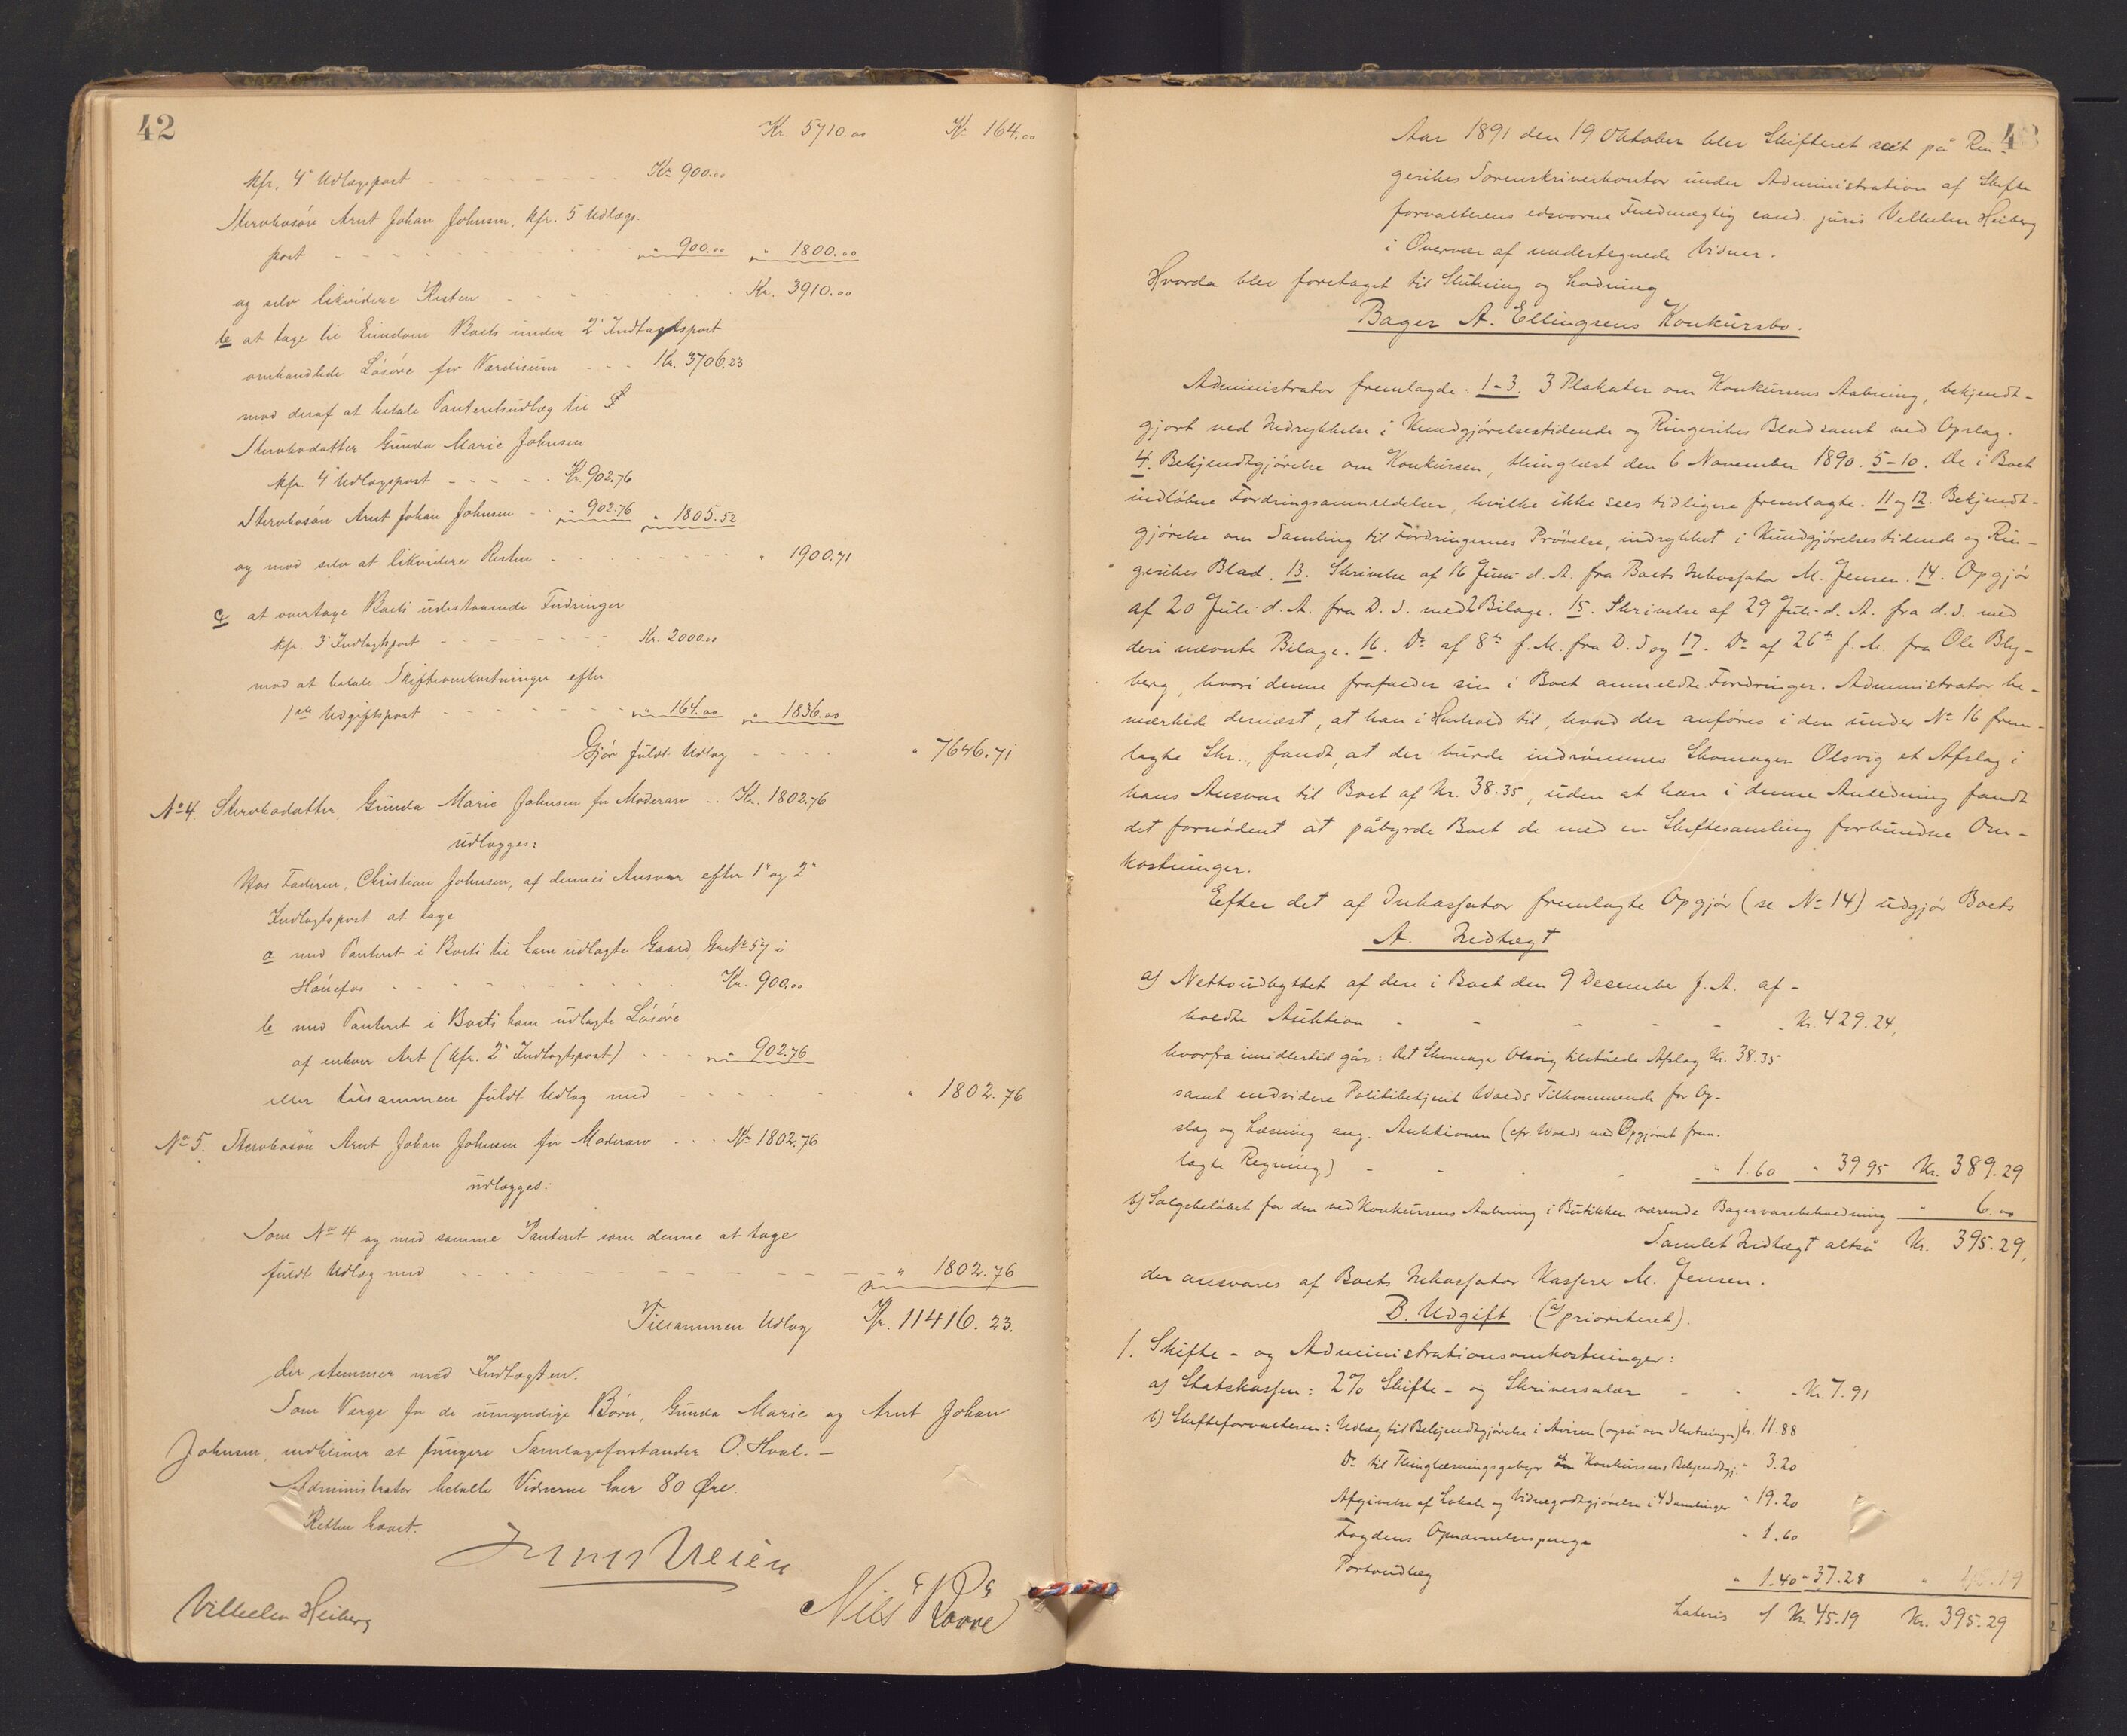 42
Kr. 5710.00 Kr. 164.00
kfr. 4de Udlægspost - - - Kr. 900.00
Stervbosön Arnt Johan Johnsen, kfr. 5 Udlægs-
post - - - " 900.00 " 1800.00
og selv likvidere Resten - - - Kr. 3910.00
b at tage til Eiendom Boets under 2' Indtægtspost
omhandlede Lösöre for Værdisum - - - Kr. 3706.23
mod deraf at betale Panteretsudlæg til
Stervbodatter Gunda Marie Johnsen
kfr. 4' Udlægspost - - - Kr. 902.76
Stervbosön Arnt Johan Johnsen - - " 902.76 " 1805.52
og mod selv at likvidere Resten - - - " 1900.71
c at overtage Boets udestaaende Fordringer
kfr. 3' Indtægtspost - - - Kr. 2000.00
mod at betale Skifteomkostninger efter
1ste Udgiftspost - - - " 164.00 " 1836.00
Gjör fuldt Udlæg - - - " 7646.71
No 4. Stervbodatter, Gunda Marie Johnsen for Moderarv - - Kr. 1802.76
udlægges:
Hos Faderen, Christian Johnsen, af dennes Ansvar efter 1' og 2'
Indtægtspost at tage
a med Panteret i Boets til ham udlagte Gaard, Gr No 57 i
Hönefos - - - Kr. 900.00
b med Panteret i Boets ham udlagte Lösöre
af enhver Art (kfr. 2' Indtægtspost) - - - " 902.76
eller tilsammen fuldt Udlæg med - - - " 1802.76
No 5. Stervbosön Arnt Johan Johnsen for Moderarv - - - Kr. 1802.76
udlægges:
Som No 4 og med samme Panteret som denne at tage
fuldt Udlæg med - - - " 1802.76
Tilsammen Udlæg Kr. 11416.23.
der stemmer med Indtægten.
Som Værge for de umyndige Börn, Gunda Marie og Arnt Johan
Johnsen, vedbliver at fungere Samlagsforstander O. Hval. -
Administrator betalte Vidnerne hver 80 Øre.
Retten hævet.
Vilhelm Heiberg
Nils
43
Aar 1891 den 19 Oktober blev Skifteret sat på Rin-
gerikes Sorenskriverkontor under Administration af Skifte
forvalterens edsvorne Fuldmægtig cand. juris Vilhelm Heiberg
i Overvær af undertegnede Vidner.
Hvorda blev foretaget til Slutning og Lodning
Bager A. Ellingsens Konkursbo.
Administrator fremlagde: 1-3. 3 Plakater om Konkursens Aabning, bekjendt-
gjort ved Indrykkelse i Kundgjörelsestidende og Ringerikes Blad samt ved Opslag.
4. Bekjendtgjörelse om Konkursen, thinglæst den 6 November 1890. 5-10. De i Boet
indlöbne Fordringsanmeldelser, hvilke ikke sees tidligere fremlagte. 11 og 12. Bekjendt-
gjörelse om Samling til Fordringernes Prövelse, indrykket i Kundgjörelsestidende og Rin-
gerikes Blad. 13. Skrivelse af 16 Juni d. A. fra Boets Inkassator M. Jensen. 14. Opgjör
af 20 Juli d. A. fra D. S. med 2 Bilage. 15. Skrivelse af 29 Juli d. A. fra d. S. med
deri nævnte Bilage. 16. Do af 8de f. M. fra D. S og 17. Do af 26de f. M. fra Ole Bly-
berg, hvori denne frafalder sin i Boet anmeldte Fordringer. Administrator be-
mærkede dernæst, at han i Henhold til, hvad der anföres i den under No 16 frem-
lagte Skr., fandt, at der burde indrömmes Skomager Olsvig et Afslag i
hans Ansvar til Boet af Kr. 38.35, uden at han i denne Anledning fandt
det fornödent at påbyrde Boet de med en Skiftesamling forbundne Om-
kostninger.
Efter det af Inkassator fremlagte Opgjör (se No 14) udgjör Boets
A. Indtægt
a) Nettoudbyttet af den i Boet den 9 Desember f. A. af-
holdte Auktion - - - Kr. 429.24,
hvorfra imidlertid går: Det Skomager Olsvig tilståede Afslag Kr. 38.35
samt endvidere Politibetjent Wolds Tilkommende for Op-
slag og Læsning ang. Auktionen (cfr. Wolds med Opgjöret frem-
lagte Regning) - - - " 1.60 " 39 95 Kr. 389.29
b) Salgsbelöbet for den ved Konkursens Aabning i Butikken værende Bagervarebeholdning " 6.00
Samlet Indtægt altså Kr. 395.29,
der ansvares af Boets Inkassator Kasserer M. Jensen.
B. Udgift. (a) prioriteret).
1. Skifte- og Administrationsomkostninger:
a) Statskassen: 2% Skifte- og Skriversalær - - - Kr. 7.91
b) Skifteforvalteren: Udlæg til Bekjendtgjörelse i Aviser (også om Slutningen) Kr. 11.88
Do til Thinglæsningsgebyr Konkursens Bekjendtgj. " 3.20
Afgivelse af Lokale og Vidnegodtgjörelse i 4 Samlinger " 19.20
Fogdens Opnævnelsespenge " 1.60
Portoudlæg " 1.40 " 37.28 " 45.19
Lateris Kr. 45.19 Kr. 395.29